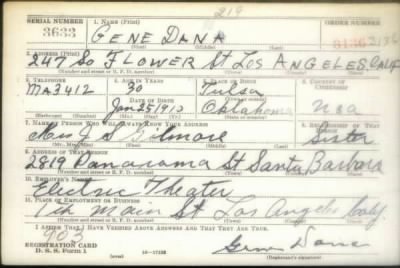 219
SERIAL NUMBER 1. NAME (Print) ORDER NUMBER
3633 GENE DANA 8136 3136
(First) (Middle) (Last)
2. ADDRESS (Print)
247 So FLOWER St LOS ANGELES, CALIF
(Number and street or R. F. D. number) (Town) (County) (State)
3. TELEPHONE 4. AGE IN YEARS 5. PLACE OF BIRTH 6. COUNTRY OF CITIZENSHIP
MA 2412 30 Tulsa
DATE OF BIRTH (Town or county)
Jan 25 1910 Oklahoma USA
(Exchange) (Number) (Mo.) (Day) (Yr.) (State or country)
7. NAME OF PERSON WHO WILL ALWAYS KNOW YOUR ADDRESS 8. RELATIONSHIP OF THAT PERSON
Mrs J S Sister
(Mr., Mrs., Miss) (First) (Middle) (Last)
9. ADDRESS OF THAT PERSON
2819 Panarama St Santa Barbara
(Number and street or R. F. D. number) (Town) (County) (State)
10. EMPLOYER'S NAME
Electric Theater
11. PLACE OF EMPLOYMENT OR BUSINESS
Main St Los Angeles Calif.
(Number and street or R. F. D. number) (Town) (County) (State)
I AFFIRM THAT I HAVE VERIFIED ABOVE ANSWERS AND THAT THEY ARE TRUE.
903
REGISTRATION CARD
D. S. S. Form 1 (over) 16-17105 Gene Dana
(Registrant's signature)